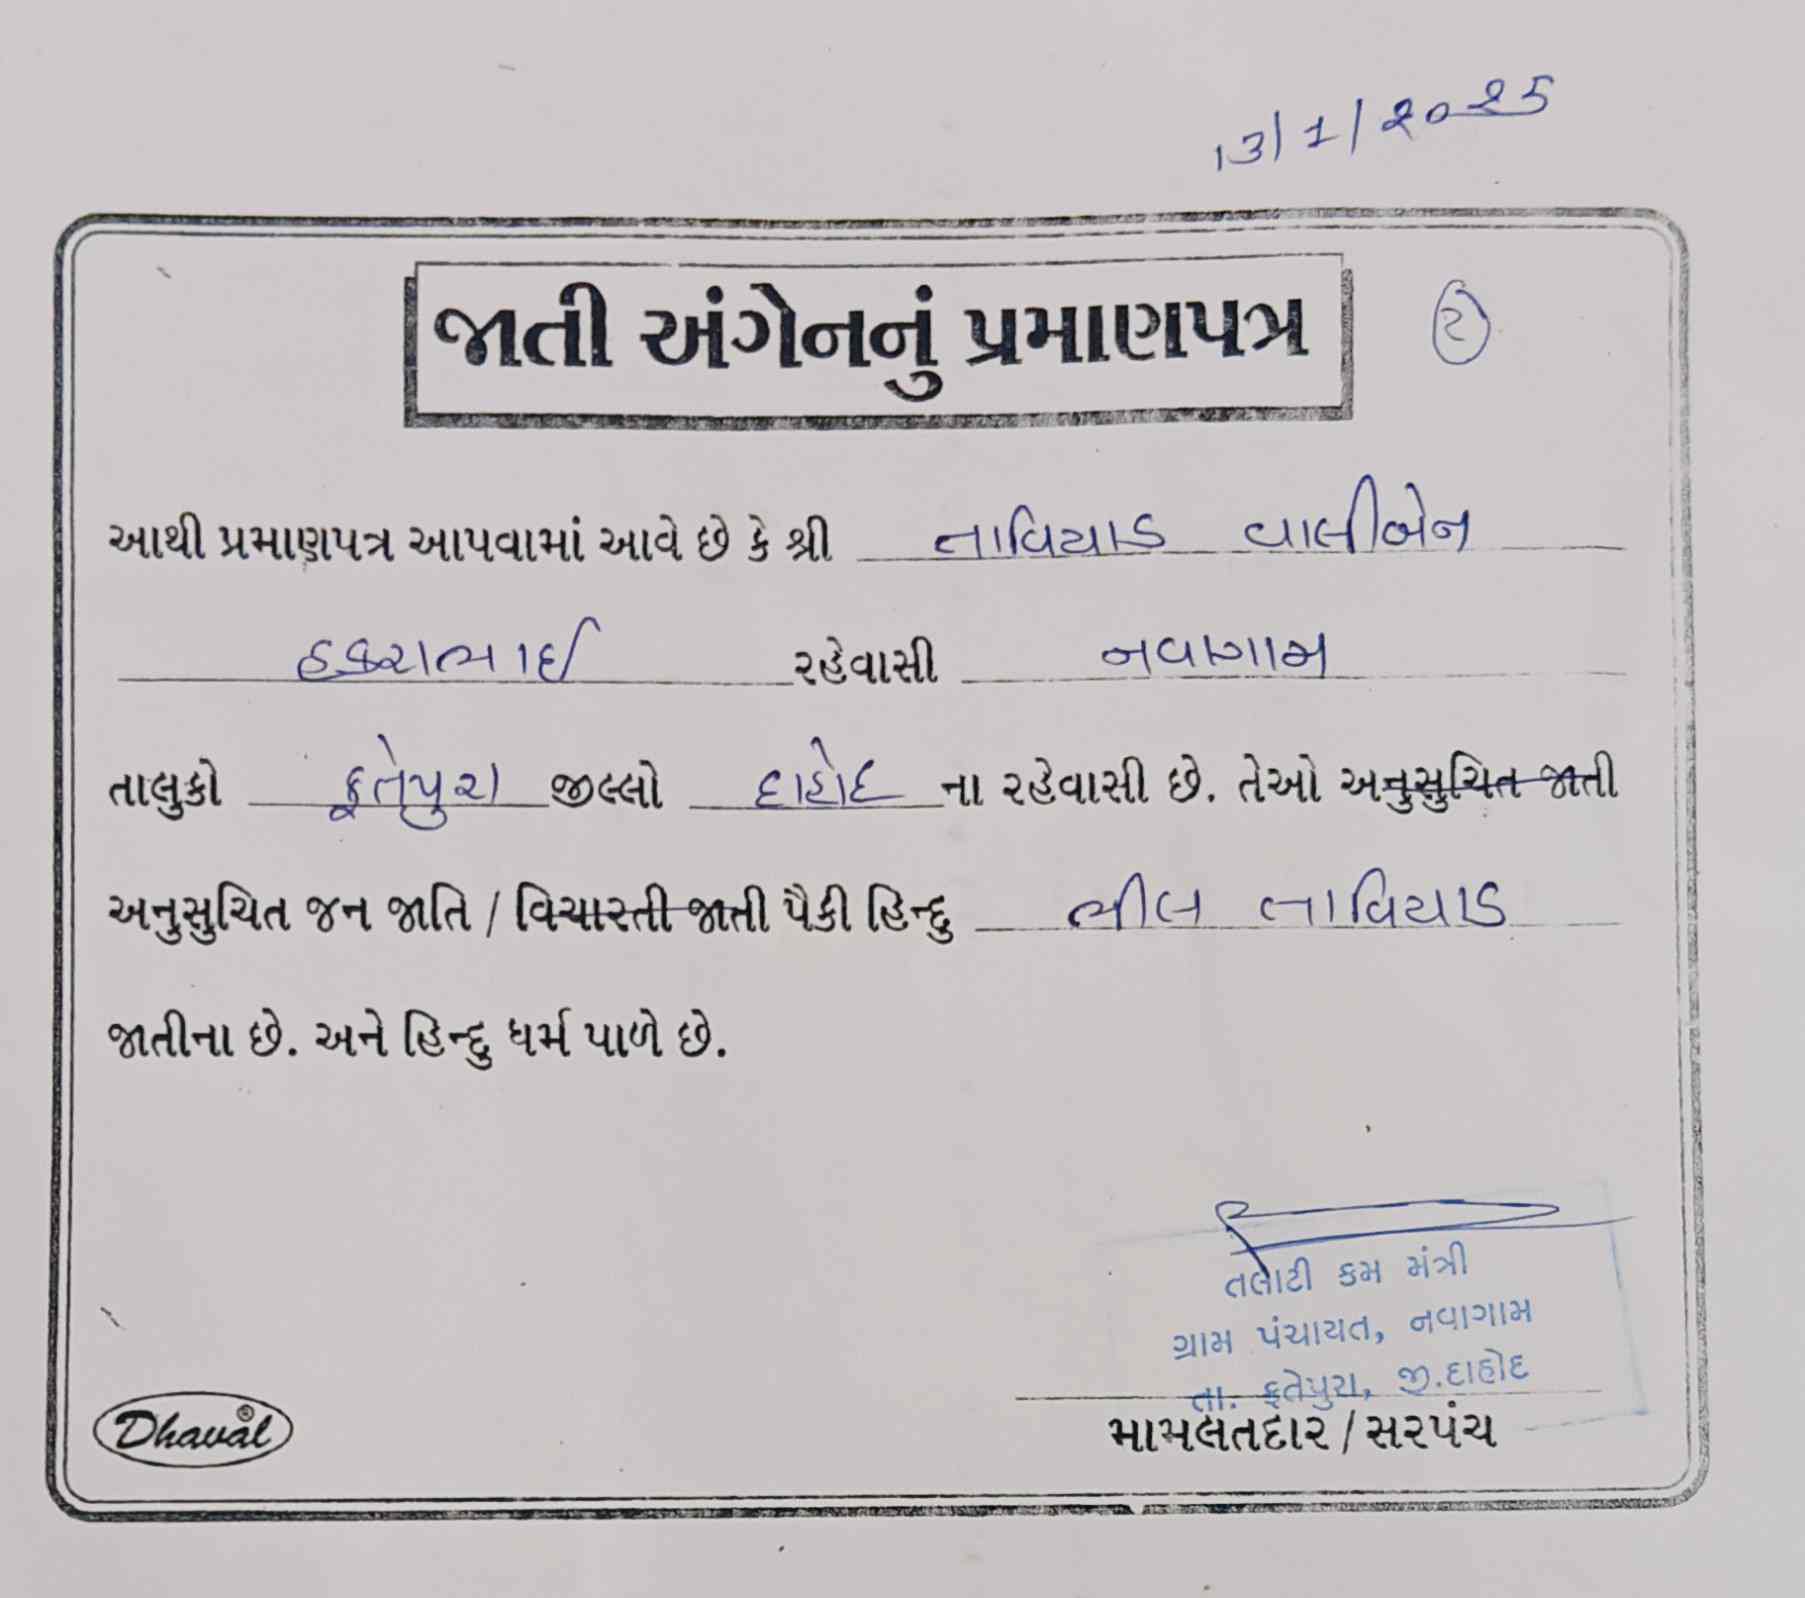 13/1/2025
જાતી અંગેનનું પ્રમાણપત્ર
૨
આથી પ્રમાણપત્ર આપવામાં આવે છે કે શ્રી તાવિયાડ વાલીબેન
હકરાભાઈ રહેવાસી નવાગામ
તાલુકો ફતેપુરા જીલ્લો દાહોદ ના રહેવાસી છે. તેઓ અનુસુચિત જાતી
અનુસુચિત જન જાતિ / વિચારતી જાતી પૈકી હિન્દુ ભીલ તાવિયાડ
જાતીના છે. અને હિન્દુ ધર્મ પાળે છે.
તલાટી કમ મંત્રી
ગ્રામ પંચાયત, નવાગામ
તા. ફતેપુરા, જી.દાહોદ
મામલતદાર / સરપંચ
Dhaval®